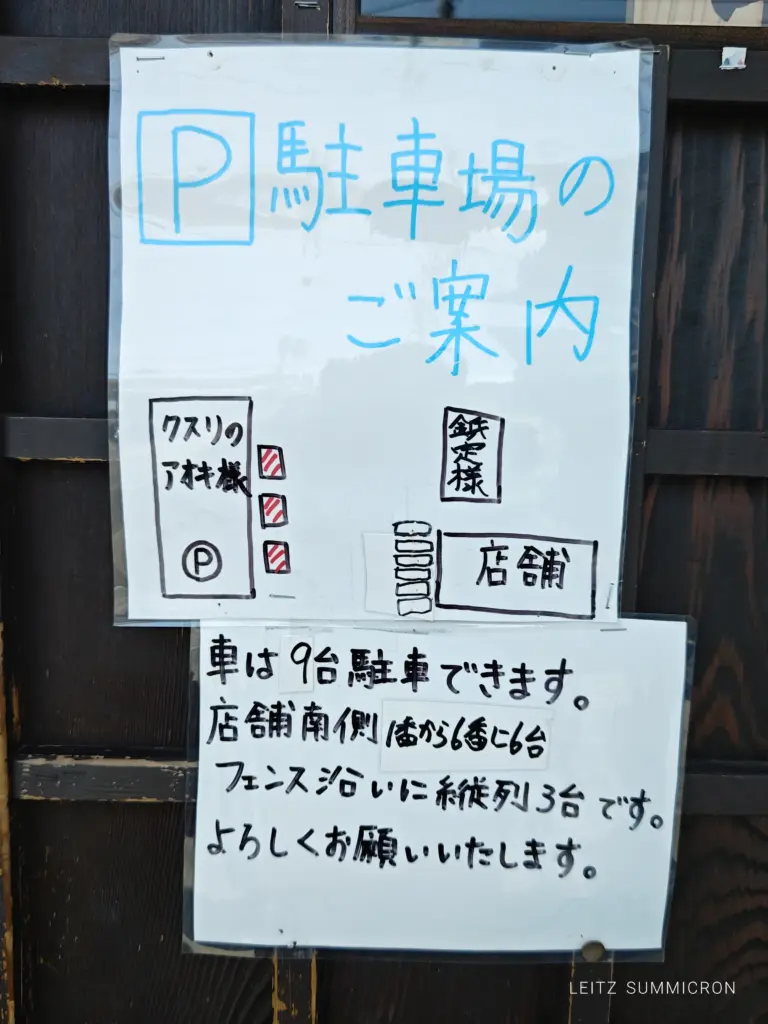 P 駐車場の
ご案内
クスリの
アオキ様
P
鉃定様
店舗
車は9台駐車できます。
店舗南側1番から6番に6台
フェンス沿いに縦列3台です。
よろしくお願いいたします。
LEITZ SUMMICRON